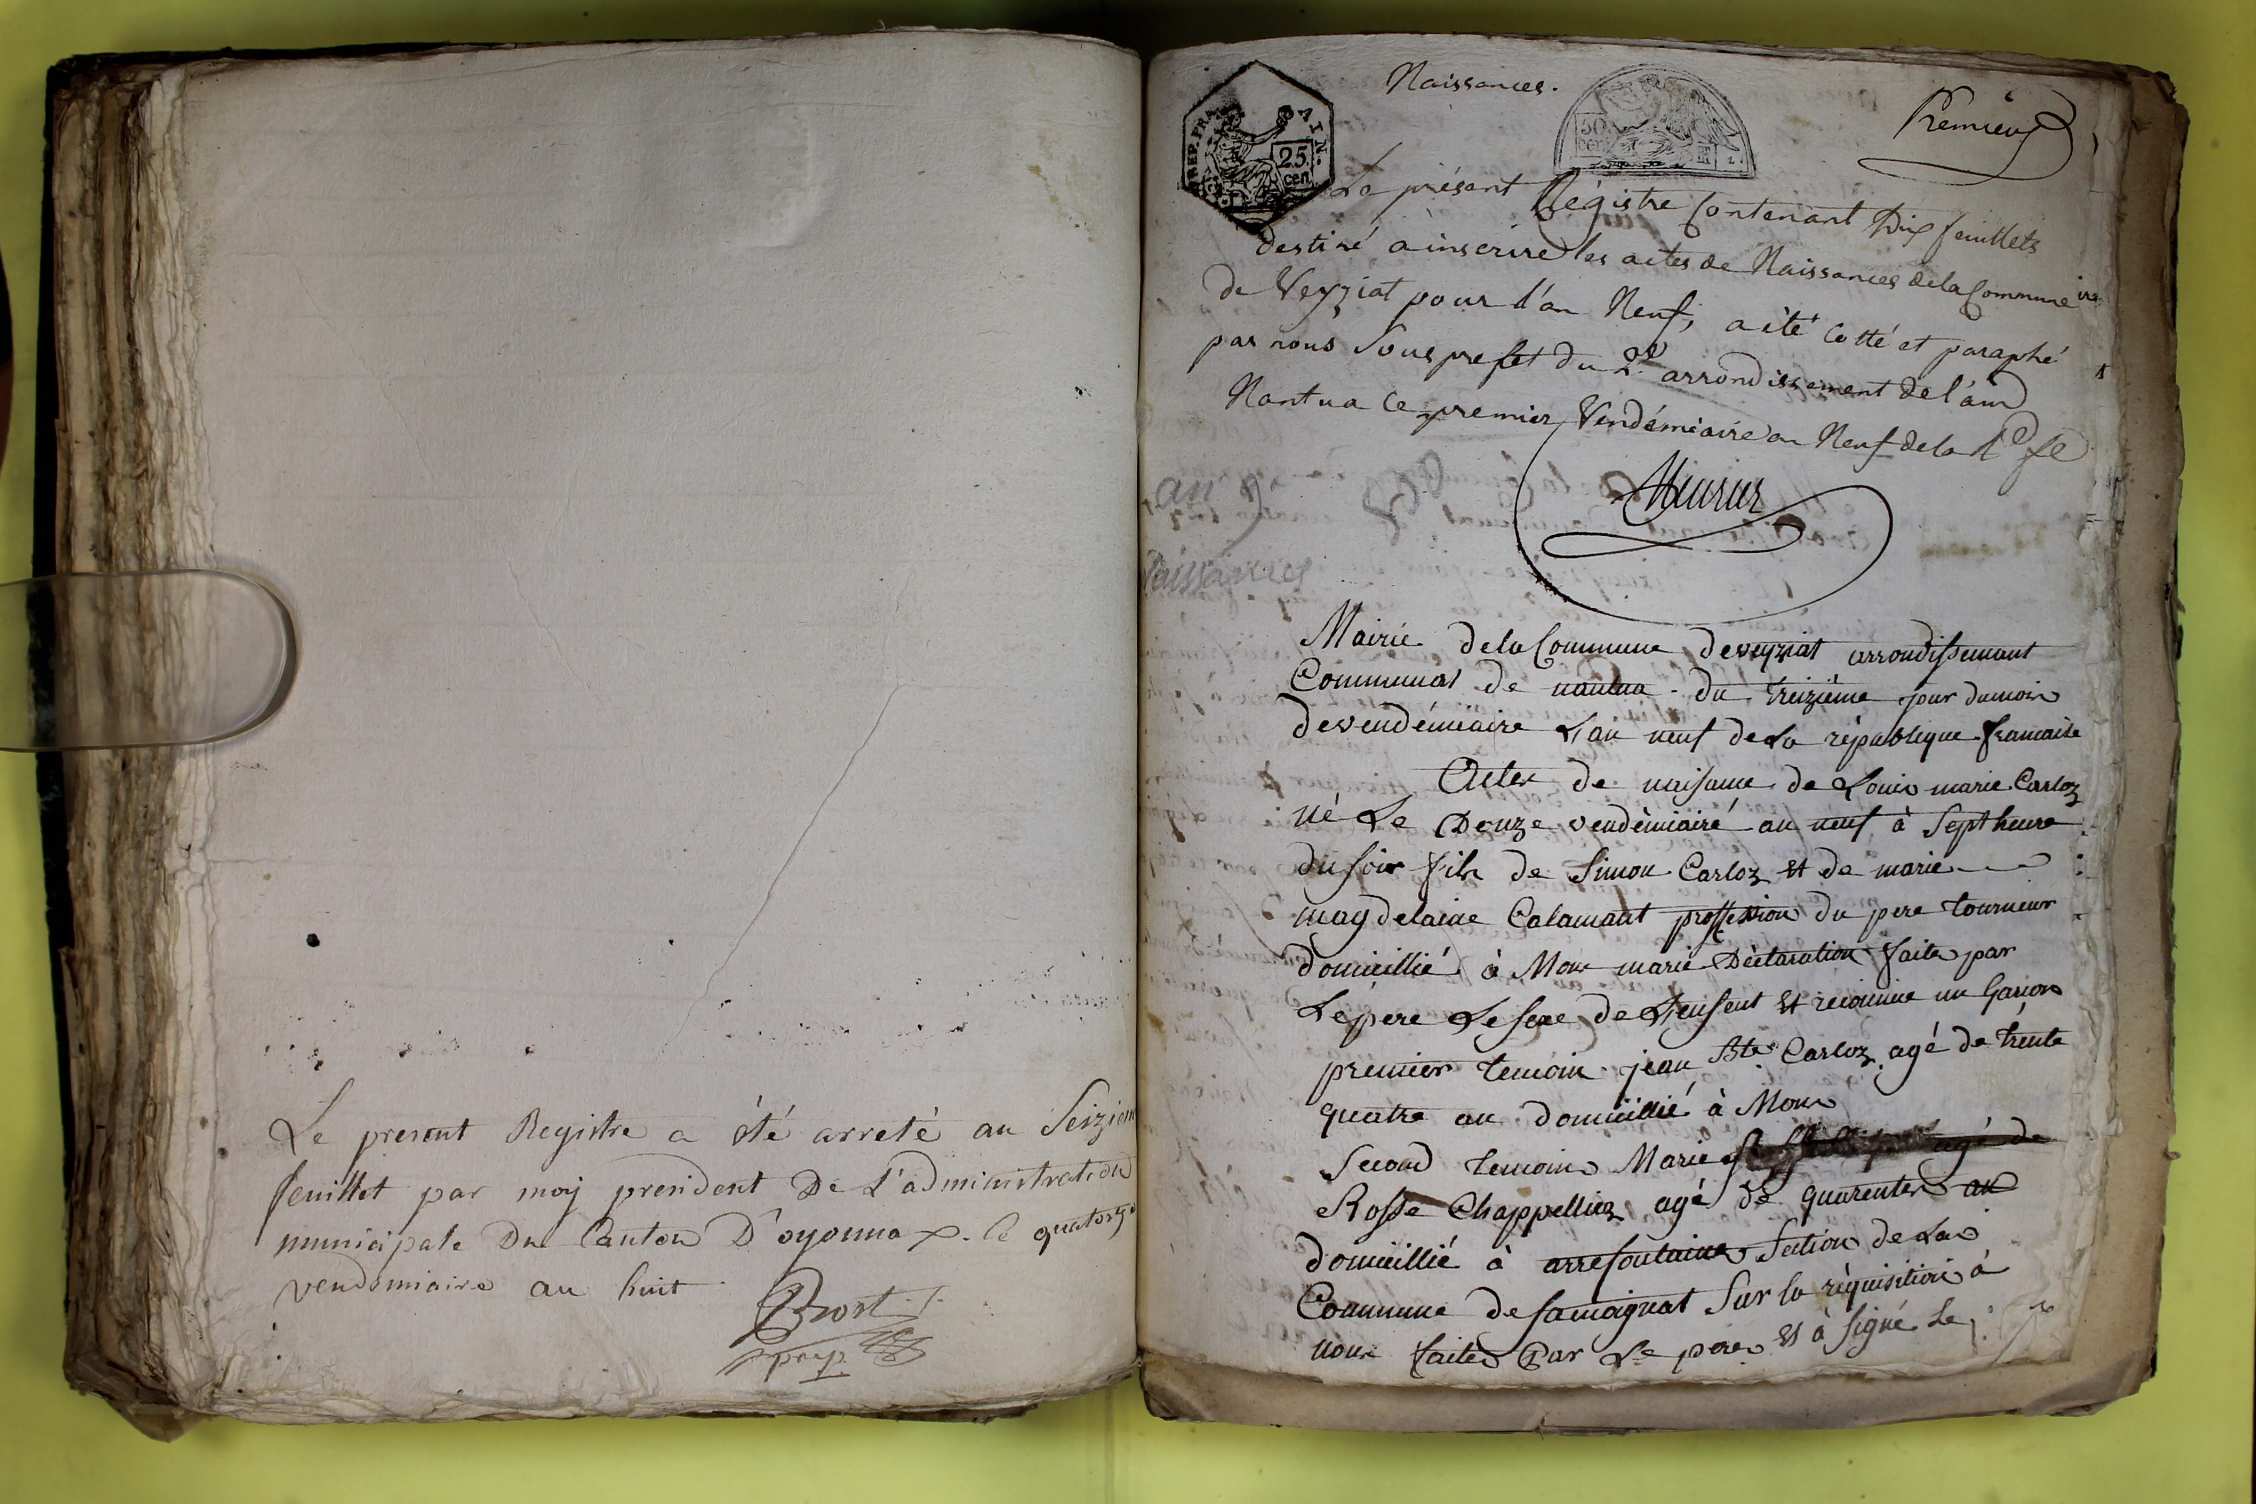 Le present Registre a été arreté au Seizieme
feuillet par moy president De L'administration
municipale Du Canton D'oyonnax. Ce quatorze
vendemiaire an huit
Brost
Naissances.
Premier
REP. FRA. AIN.
25 cen
50 cen
Le présent Régistre Contenant Dix feuillets
destiné à inscrire les actes de Naissances de la Commune
de Veyziat pour l'an Neuf, a été Cotté et paraphé
par nous Sous prefet du 2e arrondissement de l'ain
Nantua Ce premier Vendémiaire an Neuf de la Re fse
an 9
Naissances
Mairie de la Commune de veyziat arrondissemant
Communal de nantua du treizième jour du mois
de vendémiaire L'an neuf de La république francaise
Acte de naisance de Louis marie Carloz
né Le Douze vendémiairé an neuf à Sept heure
du soir fils de Simon Carloz et de marie
magdelaine Calamant proffession du pere tourneur
domicillié à Mons marié Déclaration faite par
Le pere Le sexe de L'ensent et reconnue un Garcon
premier temoin jean Bte Carloz agé de trente
quatre an domicillié à Mons
Second temoins Marie agé de
Rosse Chappelliez agé de quarente an
domicillié à arrefontaine Section de La
Commune de samoignat Sur la réquisition à
nous faite Par Le pere et à signé Le